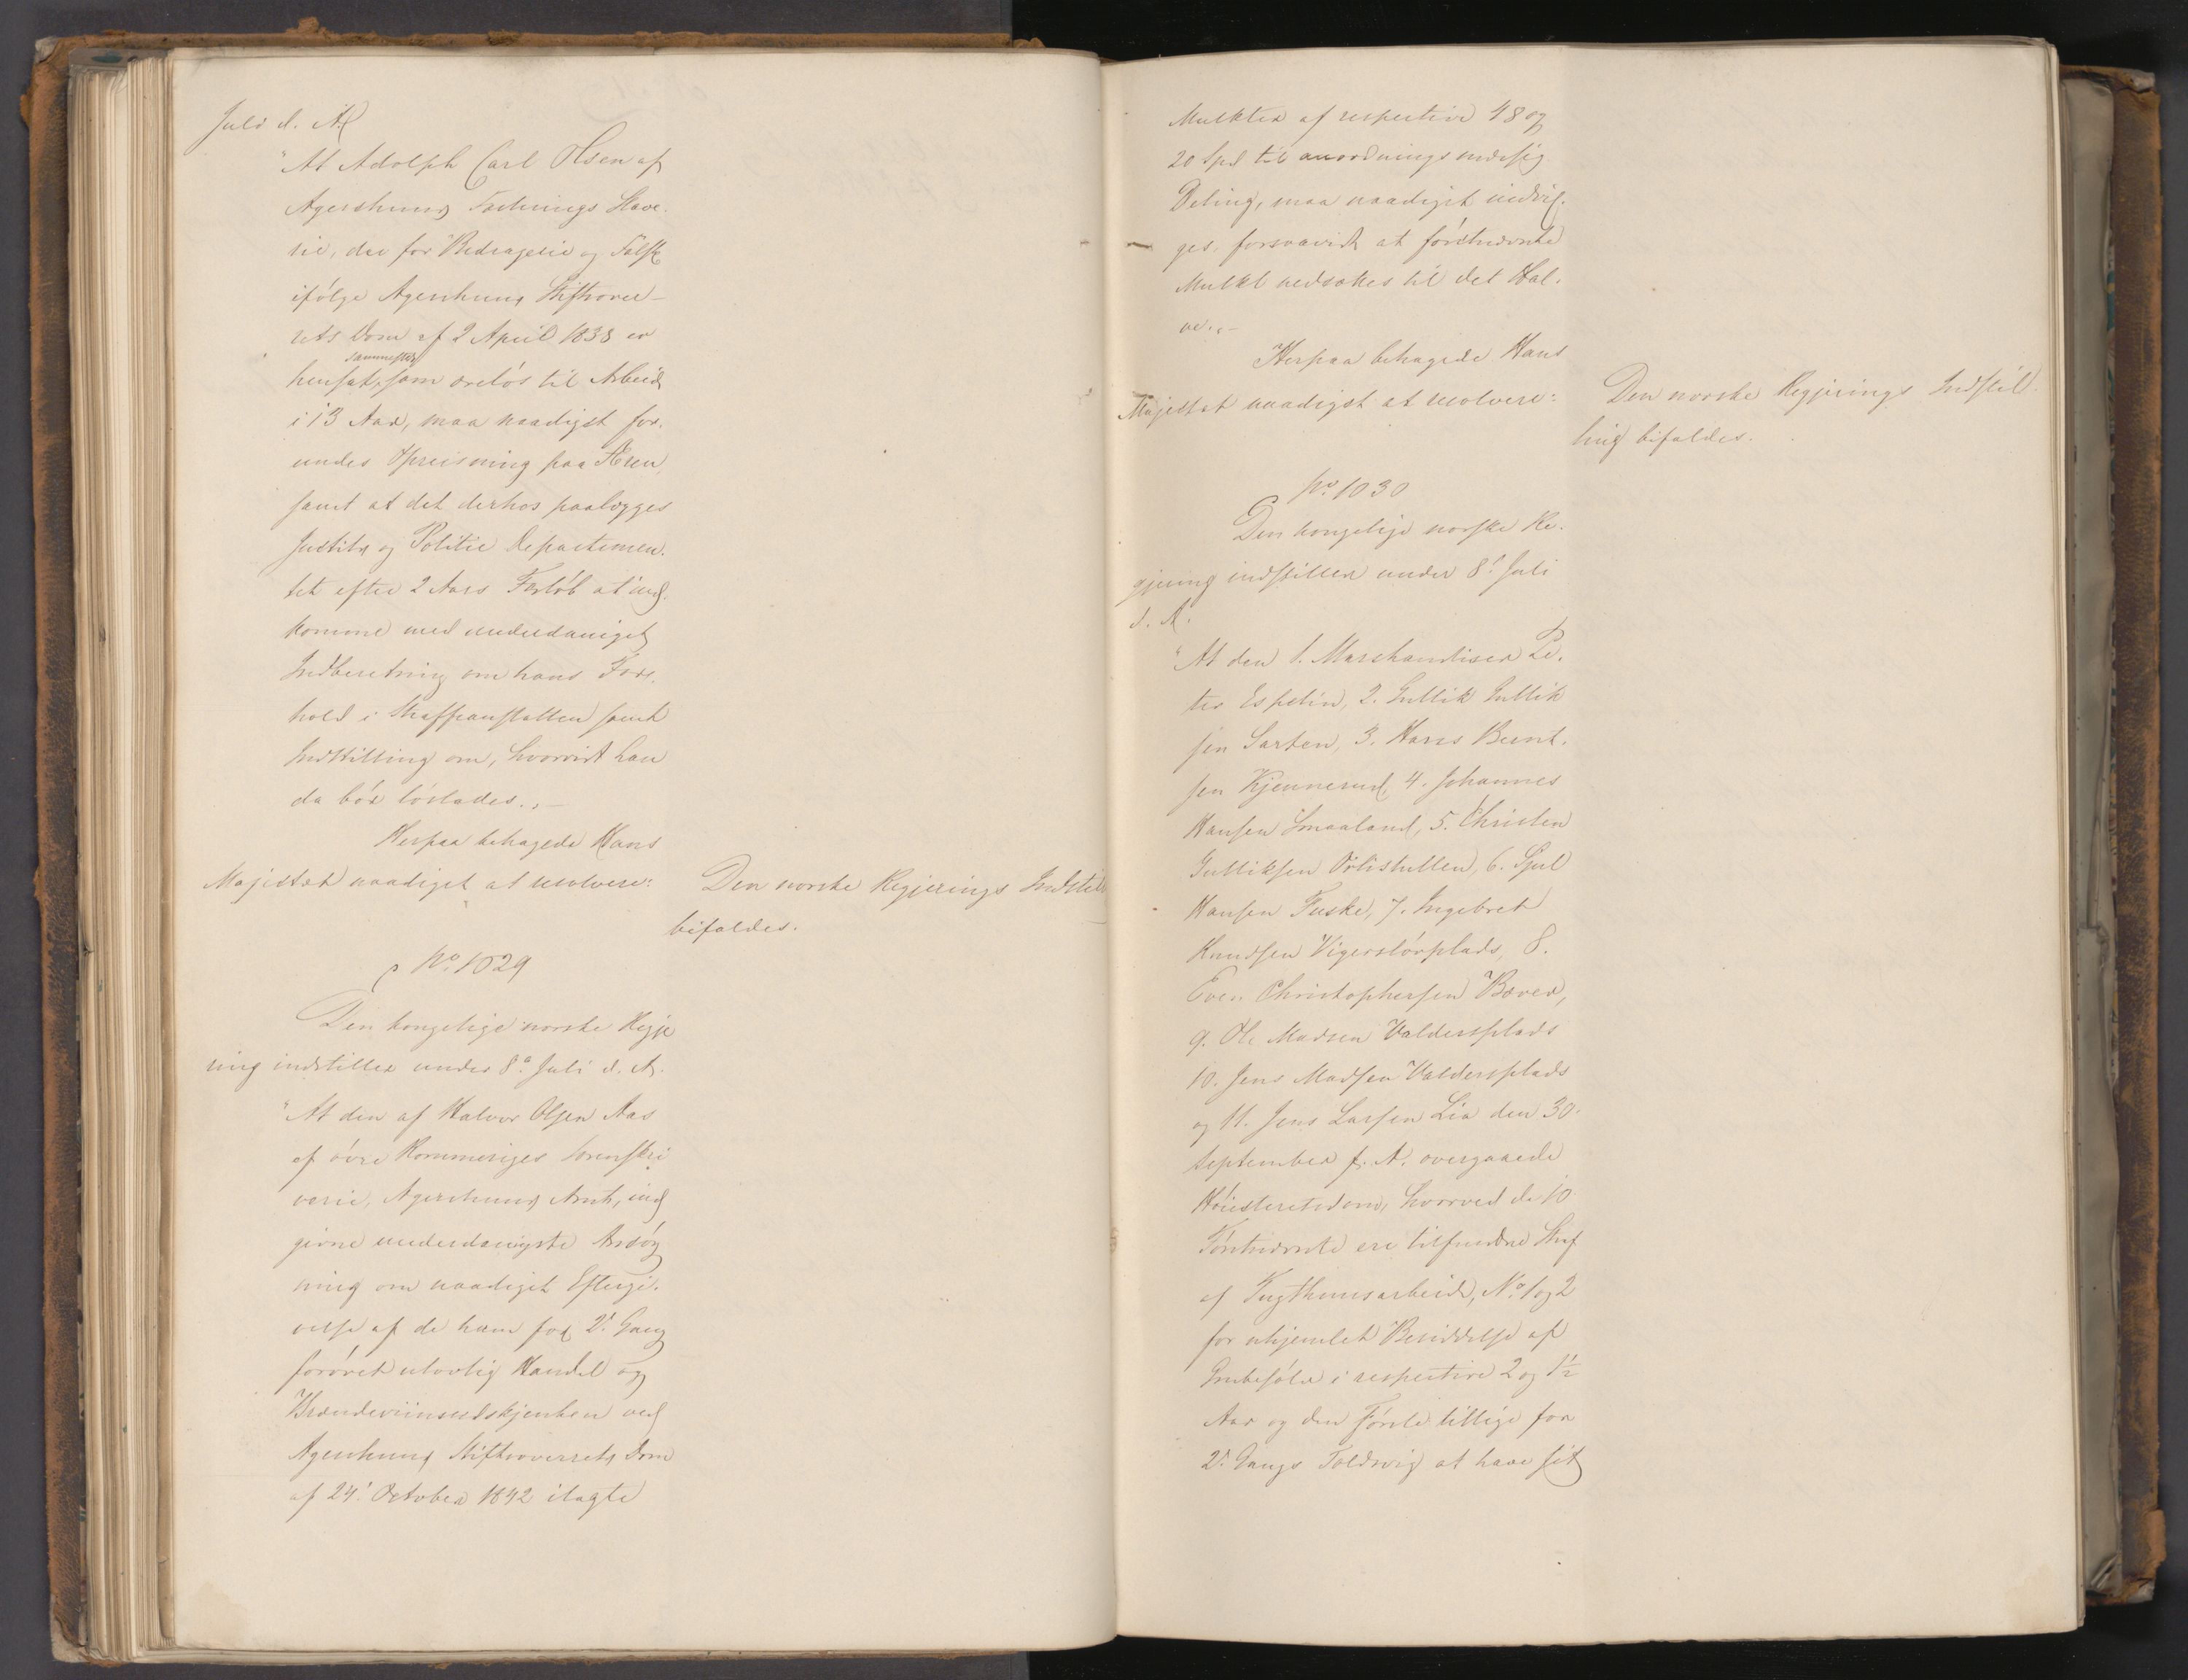 Juli d. A.
"At Adolph Carl Olsen af
Agershuus Fæstnings Slave-
rie, der for Bedragerie og Falsk
ifølge Agershuus Stiftsover-
rets Dom af 2 April 1838 er
hensat sammesteds, som æreløs til Arbeide
i 13 Aar, maa naadigst for-
undes Opreisning paa Æren,
samt at det derhos paalægges
Justits og Politie Departemen-
tet efter 2 Aars Forløb at ind-
komme med underdanigst
Indberetning om hans For-
hold i Straffeanstalten samt
Indstilling om, hvorvidt han
da bør løslades."
Herpaa behagede Hans
Majestæt naadigst at resolvere:
Den norske Regjerings Indstill
bifaldes.
No. 1029
Den kongelige norske Regje
ring indstiller under 8de Juli d. A.
"At den af Halvor Olsen Aas
af øvre Rommeriges Sorenskri
verie, Agershuus Amt, ind
givne underdanigste Ansøg
ning om naadigst Eftergi-
velse af de ham for 2d Gang
forøvet ulovlig Handel og
Brændeviinsudskjenken ved
Agershuus Stiftsoverrets Dom
af 24d October 1842 ilagte
Mulkter af respective 48 og
20 Spd til anordningsmæssig
Deling, maa naadigst indvil-
ges, forsaavidt at førstnævnte
Mulkt nedsættes til det Hal-
ve."
Herpaa behagede Hans
Majestæt naadigst at resolvere:
Den norske Regjerings Indstil
ling bifaldes.
No. 1030
Den kongelige norske Re-
gjering indstiller under 8d Juli
d. A.
"At den 1. Marchandiser Pe-
ter Espelin, 2. Gullik Gullik
sen Sarten, 3. Hans Bent-
sen Kjennerud, 4. Johannes
Hansen Smaaland, 5. Christen
Gulliksen 6. Sjul
Hansen Fuske, 7. Ingebret
Knudsen Vigerslørplads, 8.
Even Christophersen Bæver,
9. Ole Madsen Valdersplads
10. Jens Madsen Valdersplads
og 11. Jens Larsen Lia den 30
September f. A. overgaaede
Høiesteretsdom, hvorved de 10
Førstnævnte ere tilfundne Straf
af Tugthuusarbeide, No. 1 og 2
for uhjemlet Besiddelse af
Grubesølv i respective 2 og 1½
Aar og den Første tillige for
2d Gangs Toldsvig at have sit